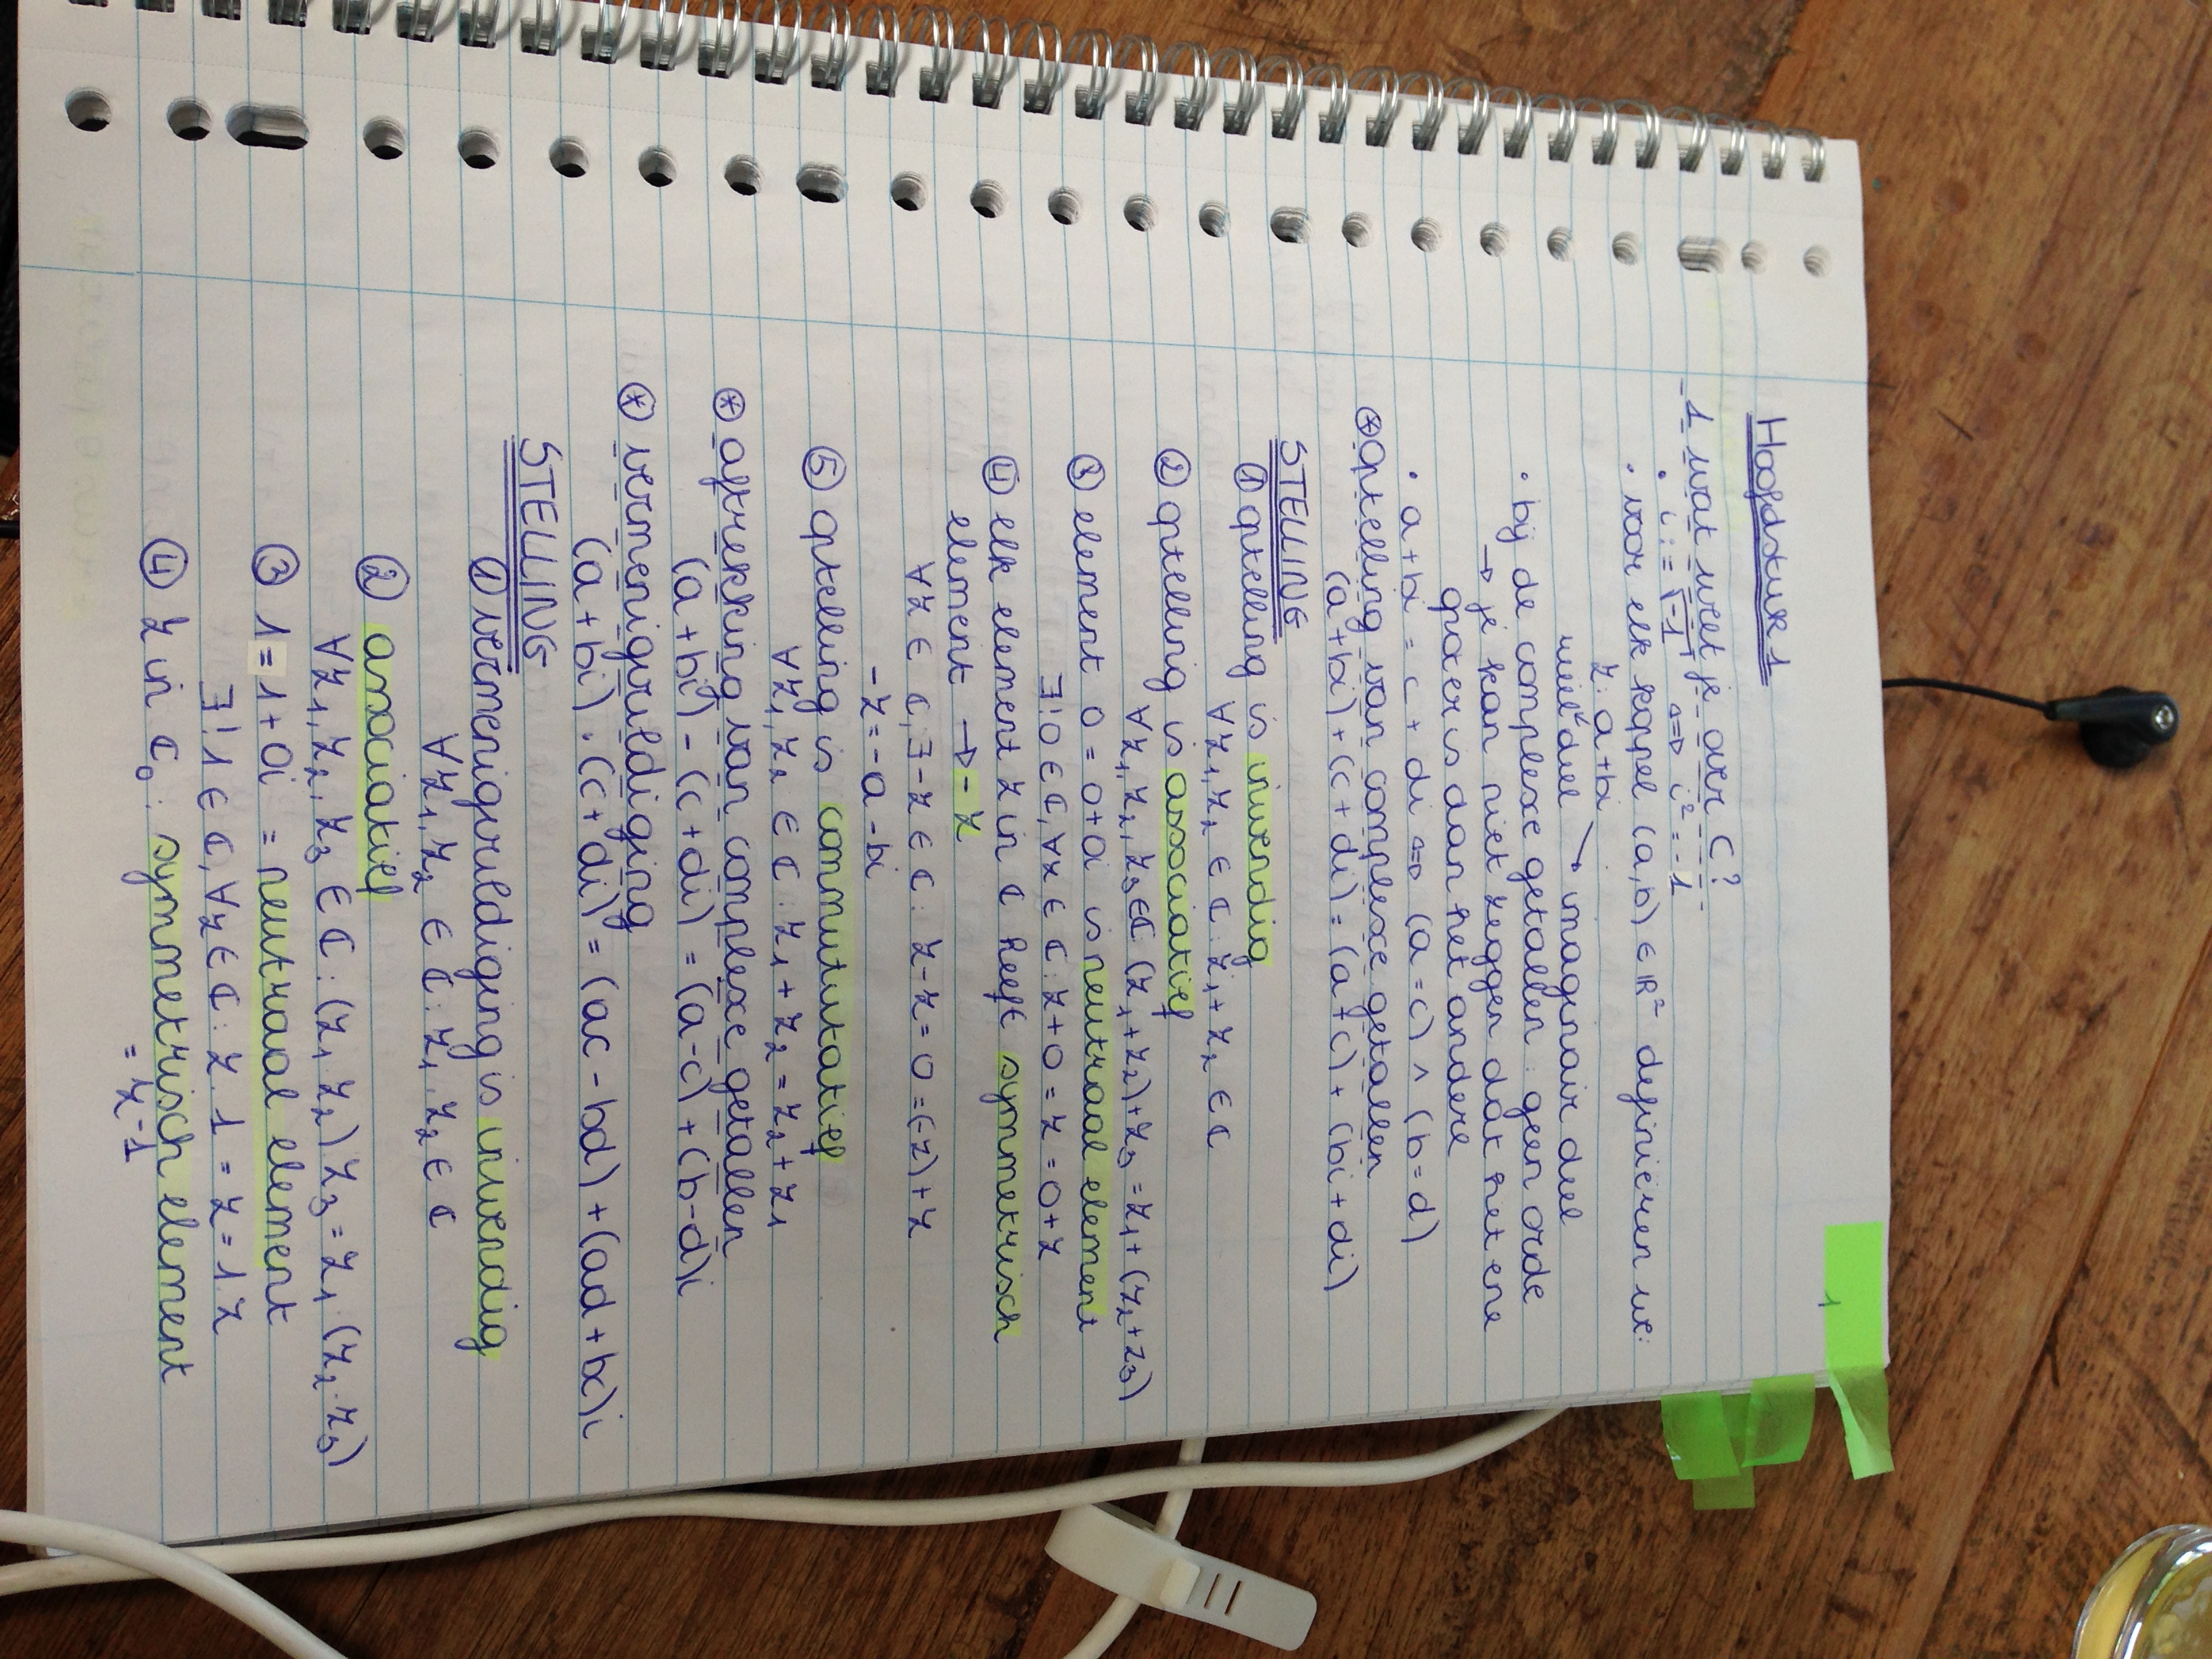 1
Hoofdstuk 1
1 wat weet je over C?
• i := √-1 ⇔ i² = -1
• voor elk koppel (a,b) ∈ ℝ² definiëren we:
z: a+bi
reëel deel → imaginair deel
• bij de complexe getallen: geen orde
→ je kan niet zeggen dat het ene
groter is dan het andere
• a+bi = c + di ⇔ (a=c) ∧ (b=d)
⊛ Optelling van complexe getallen
(a+bi)+(c+di) = (a+c) + (bi+di)
STELLING
① optelling is inwendig
∀z₁,z₂ ∈ ℂ: z₁+z₂ ∈ ℂ
② optelling is associatief
∀z₁,z₂,z₃∈ℂ: (z₁+z₂)+z₃ = z₁+(z₂+z₃)
③ element 0 = 0+0i is neutraal element
∃!0 ∈ ℂ, ∀z ∈ ℂ: z+0 = z = 0+z
④ elk element z in ℂ heeft symmetrisch
element → -z
∀z ∈ ℂ, ∃-z ∈ ℂ: z-z = 0 = (-z)+z
-z = -a -bi
⑤ optelling is commututatief
∀z₁,z₂ ∈ ℂ: z₁+z₂ = z₂+z₁
⊛ aftrekking van complexe getallen
(a+bi) - (c+di) = (a-c)+(b-d)i
⊛ vermenigvuldiging
(a+bi)·(c+di) = (ac-bd)+(ad+bc)i
STELLING
① vermenigvuldiging is inwendig
∀z₁,z₂ ∈ ℂ: z₁·z₂ ∈ ℂ
② associatief
∀z₁,z₂,z₃ ∈ ℂ: (z₁·z₂) z₃ = z₁·(z₂·z₃)
③ 1 = 1+0i = neutraal element
∃!1 ∈ ℂ, ∀z∈ℂ: z·1 = z = 1·z
④ z in ℂ₀: symmetrisch element
= z⁻¹